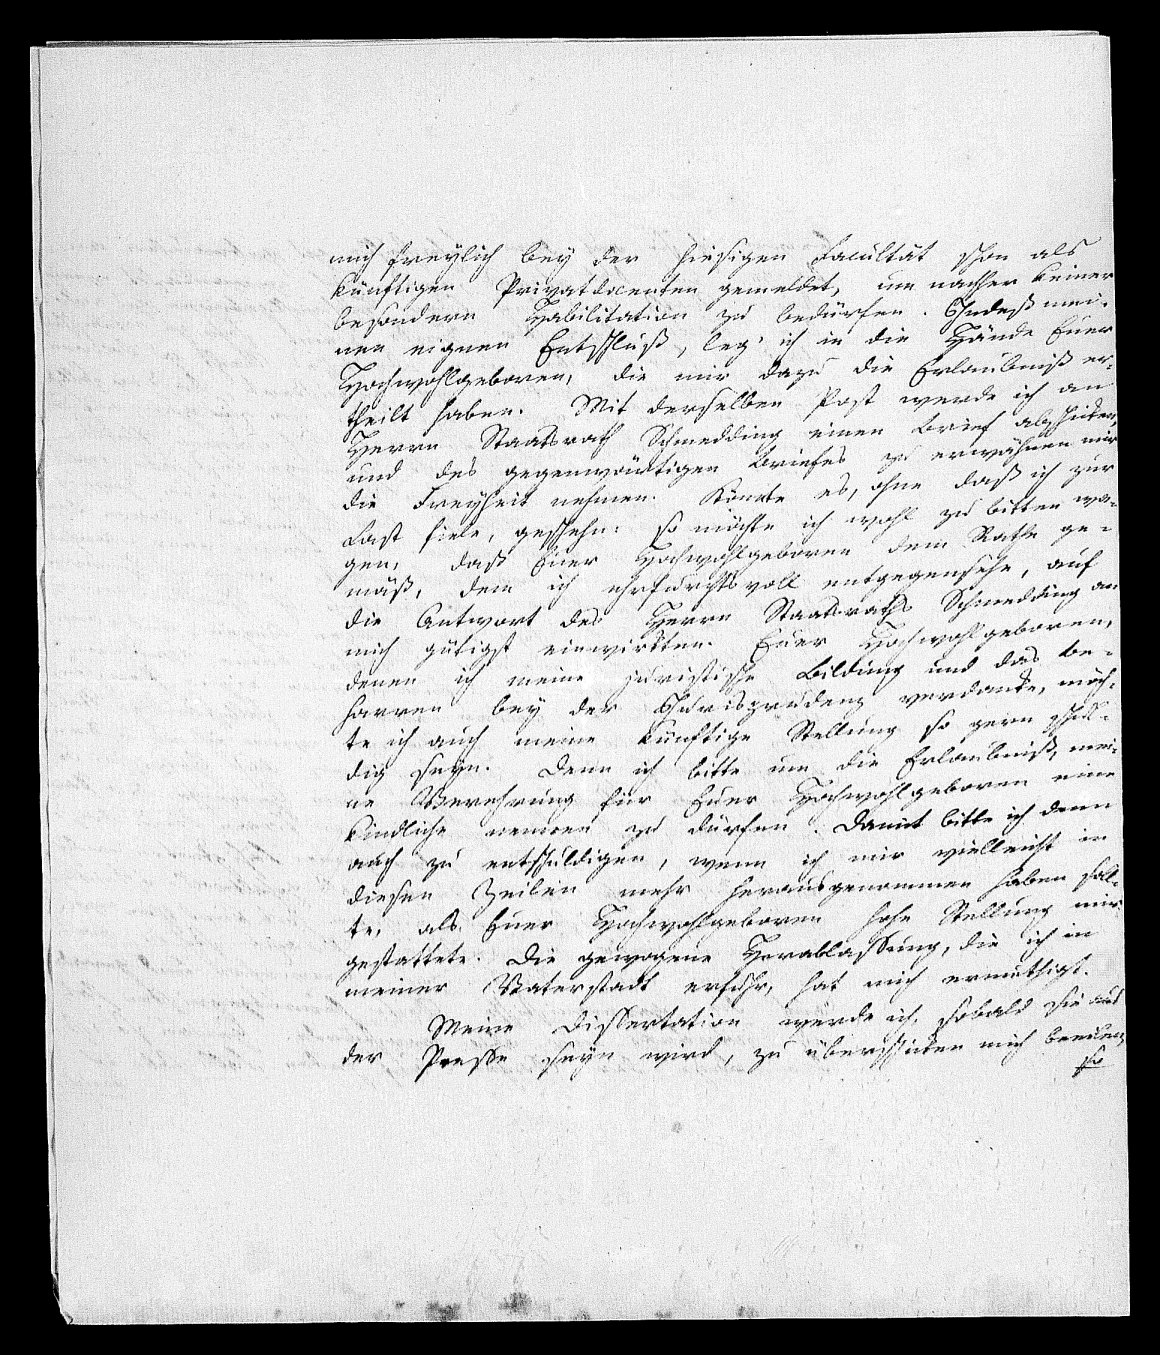 mich freylich bey der hiesigen Facultät schon als
künftigen Privatdocenten gemeldet, um nachher keiner
besondern Habilitation zu bedürfen. Indeß mei-
nen eignen Entschluß, leg' ich in die Hände Euer
Hochwohlgeboren, die mir dazu die Erlaubniß er-
theilt haben. Mit derselben Post werde ich an
Herrn Staatsrath Schmedding einen Brief abschicken,
und des gegenwärtigen Briefes zu erwähnen mir
die Freyheit nehmen. Könnte es, ohne daß ich zur
Last fiele, geschehn: so möchte ich wohl zu bitten wa-
gen, daß Euer Hochwohlgeboren dem Rathe ge-
mäß, dem ich ehrfurchtsvoll entgegensehe, auf
die Antwort des Herrn Staatsraths Schmedding an
mich gütigst einwirkten. Euer Hochwohlgeboren,
denen ich meine juristische Bildung und das Be-
harren bey der Jurisprudenz verdanke, möch-
te ich auch meine künftige Stellung so gern schul-
dig seyn. Denn ich bitte um die Erlaubniß, mei-
ne Verehrung für Euer Hochwohlgeboren eine
kindliche nennen zu dürfen. Damit bitte ich denn
auch zu entschuldigen, wenn ich mir vielleicht in
diesen Zeilen mehr herausgenommen haben soll-
te, als Euer Hochwohlgeboren hohe Stellung mir
gestattete. Die gewogene Herablassung, die ich in
meiner Vaterstadt erfuhr, hat mich ermuthigt.
Meine Dissertation werde ich, sobald sie aus
der Presse seyn wird, zu überschicken mich beeilen,
so